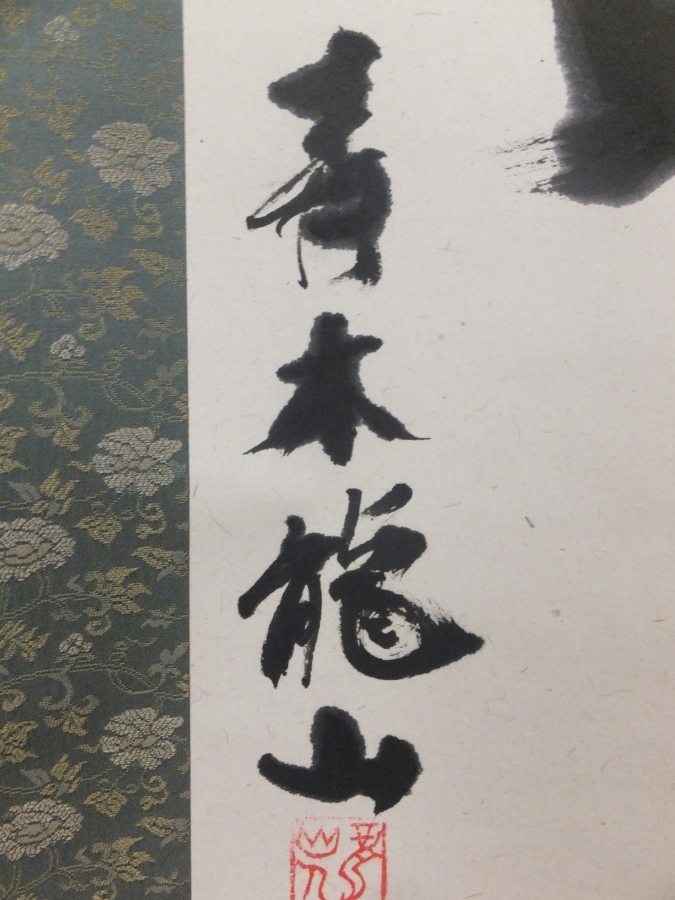 青木龍山